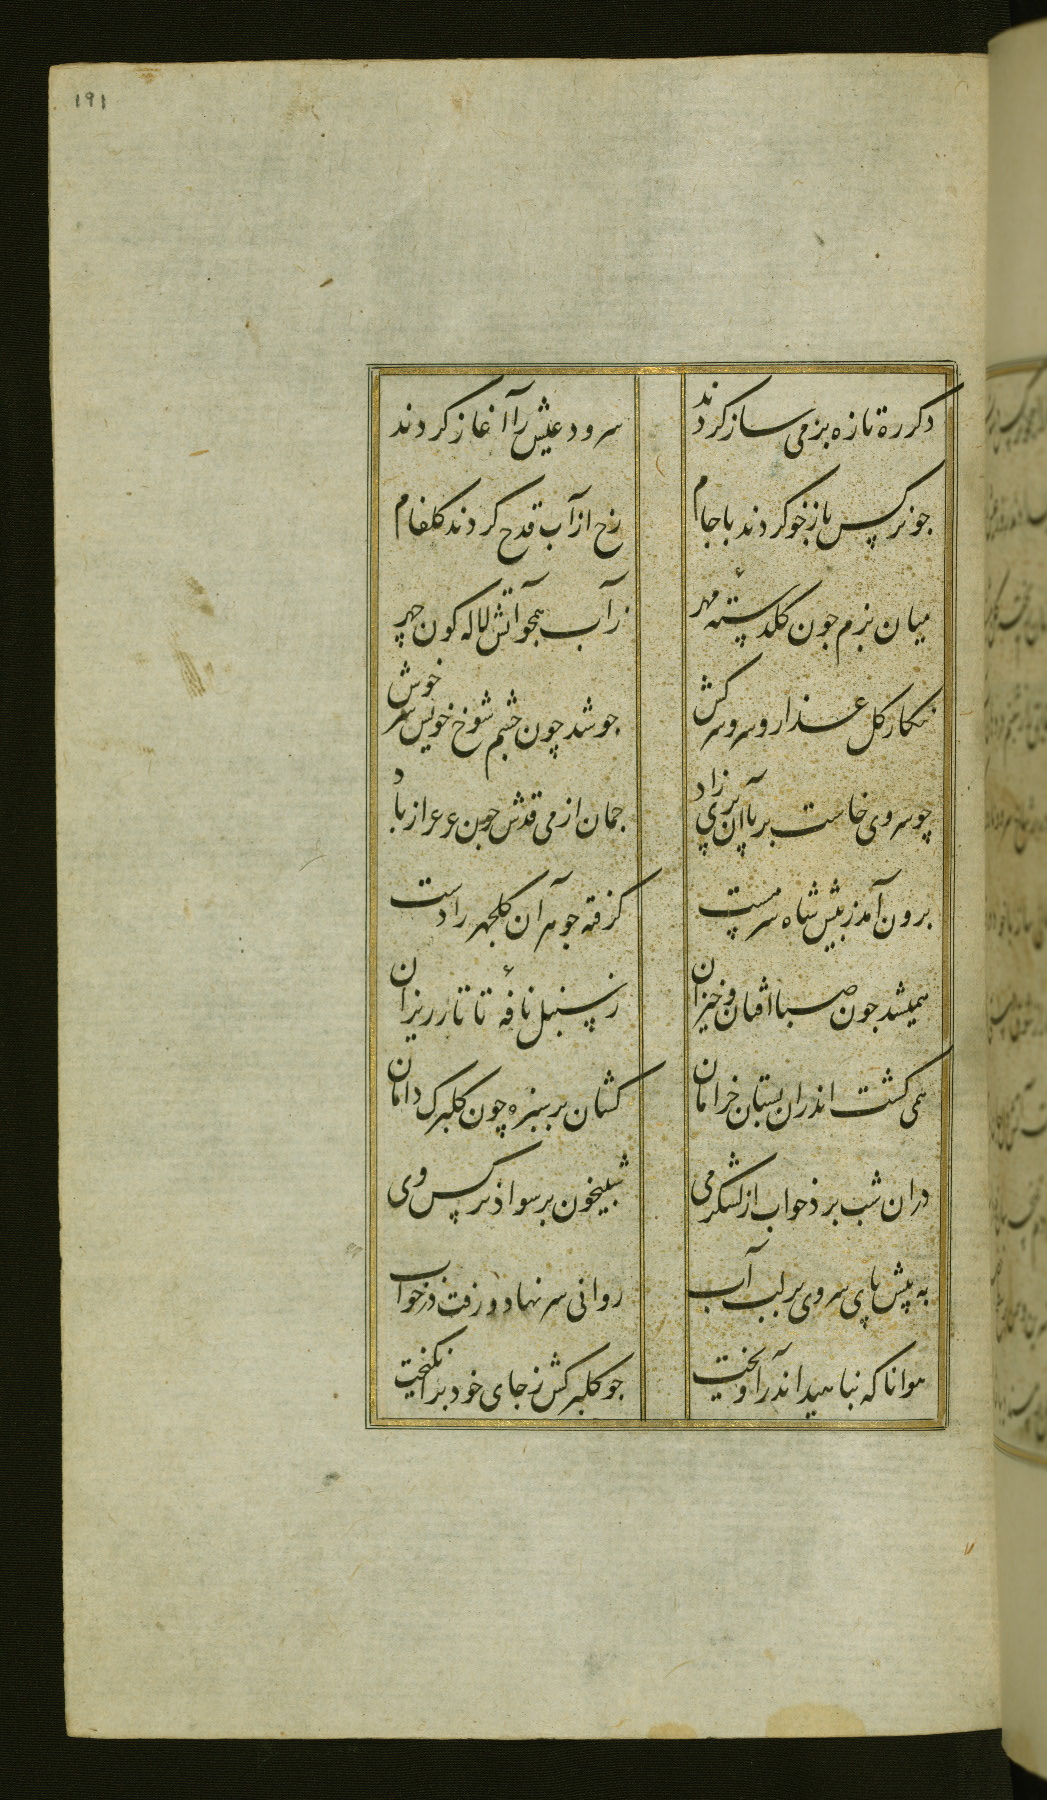 ۱۹۱
دکر ره تازه بزمی ساز کردند سرود عیش را آغاز کردند
جو نرکس باز خو کردند با جام رخ از آب قدح کردند کلفام
میان بزم جون کلدستهٔ مهر ز آب همجو آتش لاله کون چهر
نکار کل عذار و سرو سرکش جو شد چون چشم شوخ خویش سرخوش
چو سروی خاست بر پا آن پری زاد جمان از می قدش چون عرعر از باد
برون آمد ز پیش شاه سرمست کرفته جوهر آن کلچهر را دست
همیشد جون صبا افتان و خیزان ز سنبل نافهٔ تاتار ریزان
همی کشت اندران بستان خرامان کشان بر سبزه چون کلبرک دامان
دران شب برد خواب از لشکر می شبیخون بر سواد نرکس وی
به پیش پای سروی بر لب آب روانی سر نهاد و رفت در خواب
هوا ناکه نبا میدا ندر آویخت جو کلبرکش ز جای خود برانکیخت